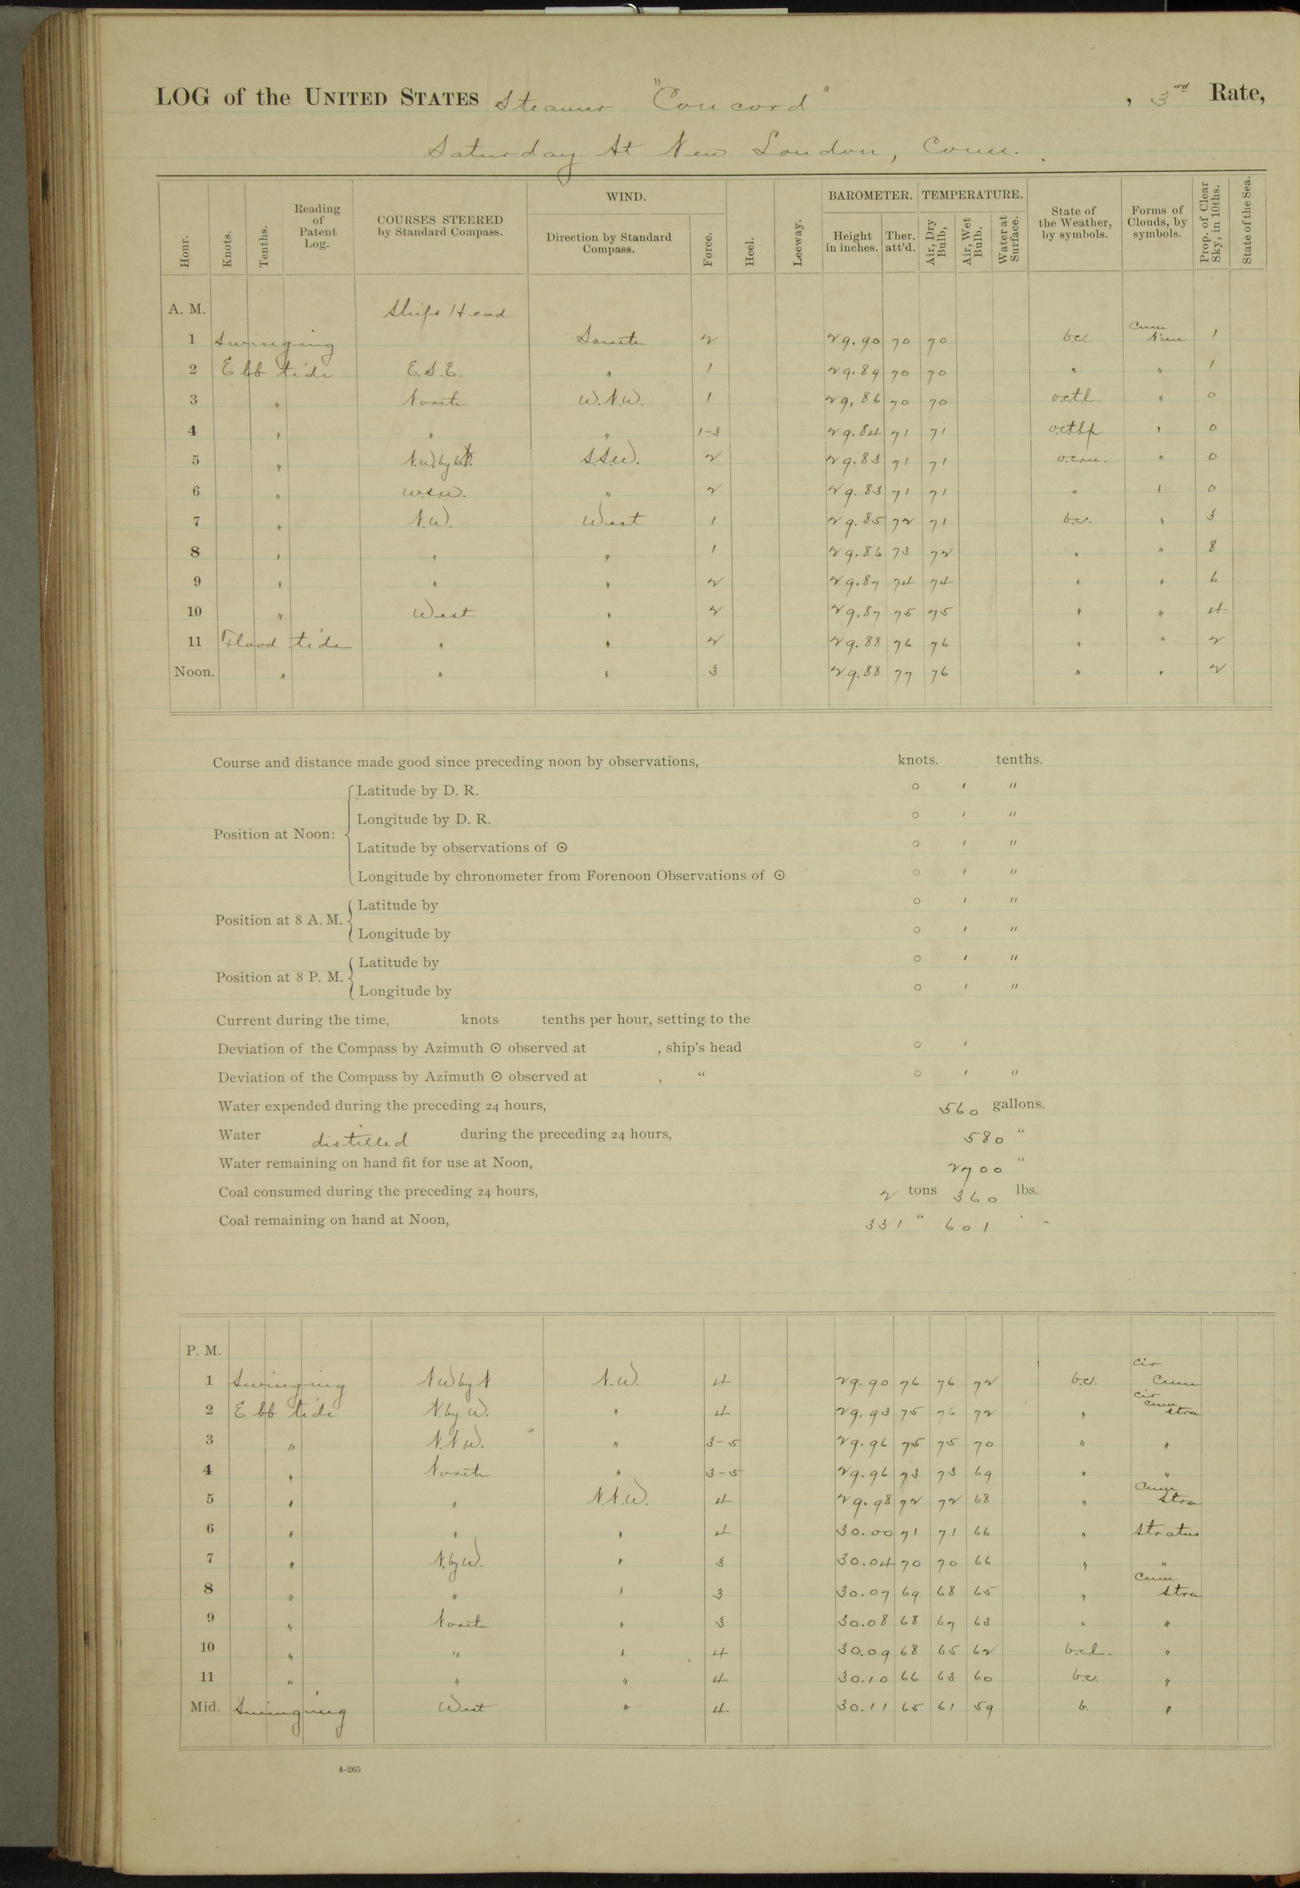 LOG of the UNITED STATES Steamer "Concord", 3rd Rate,
Saturday. At New London, Conn.
Hour. Knots. Tenths. Reading of Patent Log. COURSES STEERED by Standard Compass. WIND. Direction by Standard Compass. Force. Heel. Leeway. BAROMETER. Height in inches. Ther. att'd. TEMPERATURE. Air, Dry Bulb, Air, Wet Bulb. Water at Surface. State of the Weather, by symbols. Forms of Clouds, by symbols. Prop. of Clear Sky, in 10ths. State of the Sea.
A. M. Ships Head
1 Swinging South 2 29.90 70 70 bc. Cum Nim 1
2 Ebb tide E.S.E. " 1 29.89 70 70 " " 1
3 " North W.N.W. 1 29.86 70 70 octl. " 0
4 " " " 1-3 29.84 71 71 " 0
5 " S.S.W. 2 29.83 71 71 " 0
6 " W.S.W. " 2 29.83 71 71 " " 0
7 " N.W. West 1 29.85 72 71 bc. " 3
8 " " " 1 29.86 73 72 " " 8
9 " " " 2 29.87 74 74 " " 6
10 " West " 2 29.87 75 75 " " 4
11 Flood tide " " 2 29.88 76 76 " " 2
Noon. " " " 3 29.88 77 76 " " 2
Course and distance made good since preceding noon by observations, knots. tenths.
Position at Noon: Latitude by D. R. ○ ′ ″
Longitude by D. R. ○ ′ ″
Latitude by observations of ⊙ ○ ′ ″
Longitude by chronometer from Forenoon Observations of ⊙ ○ ′ ″
Position at 8 A. M. Latitude by ○ ′ ″
Longitude by ○ ′ ″
Position at 8 P. M. Latitude by ○ ′ ″
Longitude by ○ ′ ″
Current during the time, knots tenths per hour, setting to the
Deviation of the Compass by Azimuth ⊙ observed at , ship's head ○ ′
Deviation of the Compass by Azimuth ⊙ observed at , " ○ ′ ″
Water expended during the preceding 24 hours, 560 gallons.
Water distilled during the preceding 24 hours, 580 "
Water remaining on hand fit for use at Noon, 2700 "
Coal consumed during the preceding 24 hours, 2 tons 360 lbs.
Coal remaining on hand at Noon, 331 " 601 "
P. M.
1 Swinging NW by N N.W. 4 29.90 76 76 72 b.c. Cir Cum
2 Ebb tide N. by W. " 4 29.93 75 76 72 " Cir Cum Stra
3 " N.N.W. " 3-5 29.96 75 75 70 " "
4 " North " 3-5 29.96 73 73 69 " "
5 " " N.N.W. 4 29.98 72 72 68 " Cum Stra
6 " " " 4 30.00 71 71 66 " Stratus
7 " N. by W. " 3 30.04 70 70 66 " "
8 " " " 3 30.07 69 68 65 " Cum Stra
9 " North " 3 30.08 68 67 63 " "
10 " " " 4 30.09 68 65 62 b.cl. "
11 " " " 4 30.10 66 63 60 b.c. "
Mid. Swinging West " 4 30.11 65 61 59 b. "
4-265